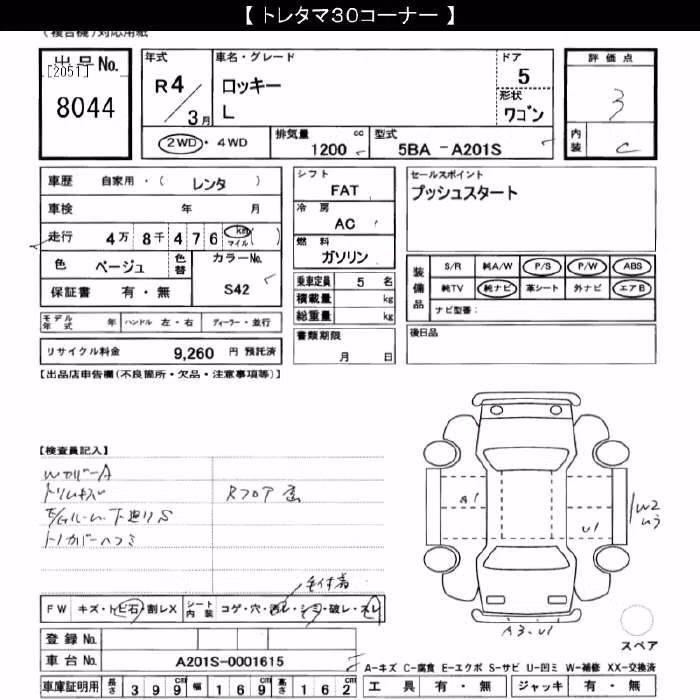 【 トレタマ30コーナー 】
(複合機)対応用紙
出品No.
[2051]
8044
年式
R4/3月
車名・グレード
ロッキー
L
ドア
5
形状
ワゴン
評価点
3
内装
C
2WD・4WD
排気量 cc
1200
型式
5BA -A201S
車歴 自家用・( レンタ )
車検 年 月
走行 4万 8千 4 7 6 km マイル ( )
色 ベージュ 色替
カラーNo.
S42
保証書 有・無
シフト
FAT
冷房
AC
燃料
ガソリン
セールスポイント
プッシュスタート
装備品
S/R 純A/W P/S P/W ABS
純TV 純ナビ 革シート 外ナビ エアB
ナビ型番:
乗車定員 5 名
積載量 kg
総重量 kg
モデル年式 年 ハンドル 左・右 ディーラー・並行
リサイクル料金 9,260 円 預託済
書類期限
月 日
後日品
【出品店申告欄(不良箇所・欠品・注意事項等)】
【検査員記入】
WカバーA
下廻りS
Rフロア
A1
U1
W2
A3.U1
FW キズ・トビ石・割レX シート内装 コゲ・穴・汚レ・シミ・破レ・スレ
登録No.
車台No. A201S-0001615
スペア
A-キズ C-腐食 E-エクボ S-サビ U-凹ミ W-補修 XX-交換済
車庫証明用 長さ 399cm 幅 169cm 高さ 162cm
工具 有・無 ジャッキ 有・無